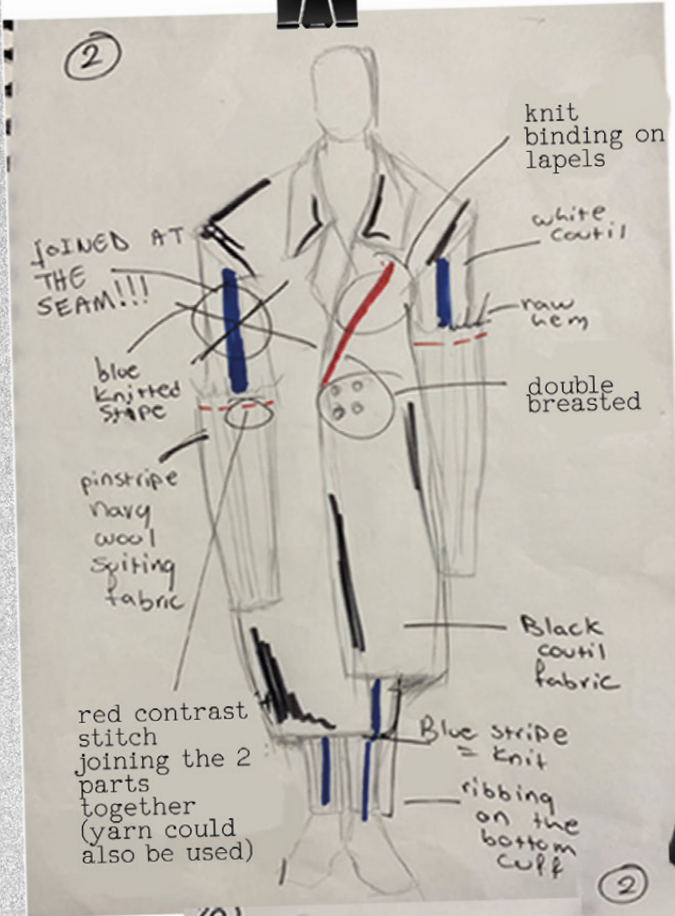 2
knit
binding on
lapels
JOINED AT
THE
SEAM!!!
white
coutil
raw
hem
blue
knitted
stripe
double
breasted
pinstripe
navy
wool
suiting
fabric
Black
coutil
fabric
red contrast
stitch
joining the 2
parts
together
(yarn could
also be used)
Blue stripe
= knit
ribbing
on the
bottom
cuff
2